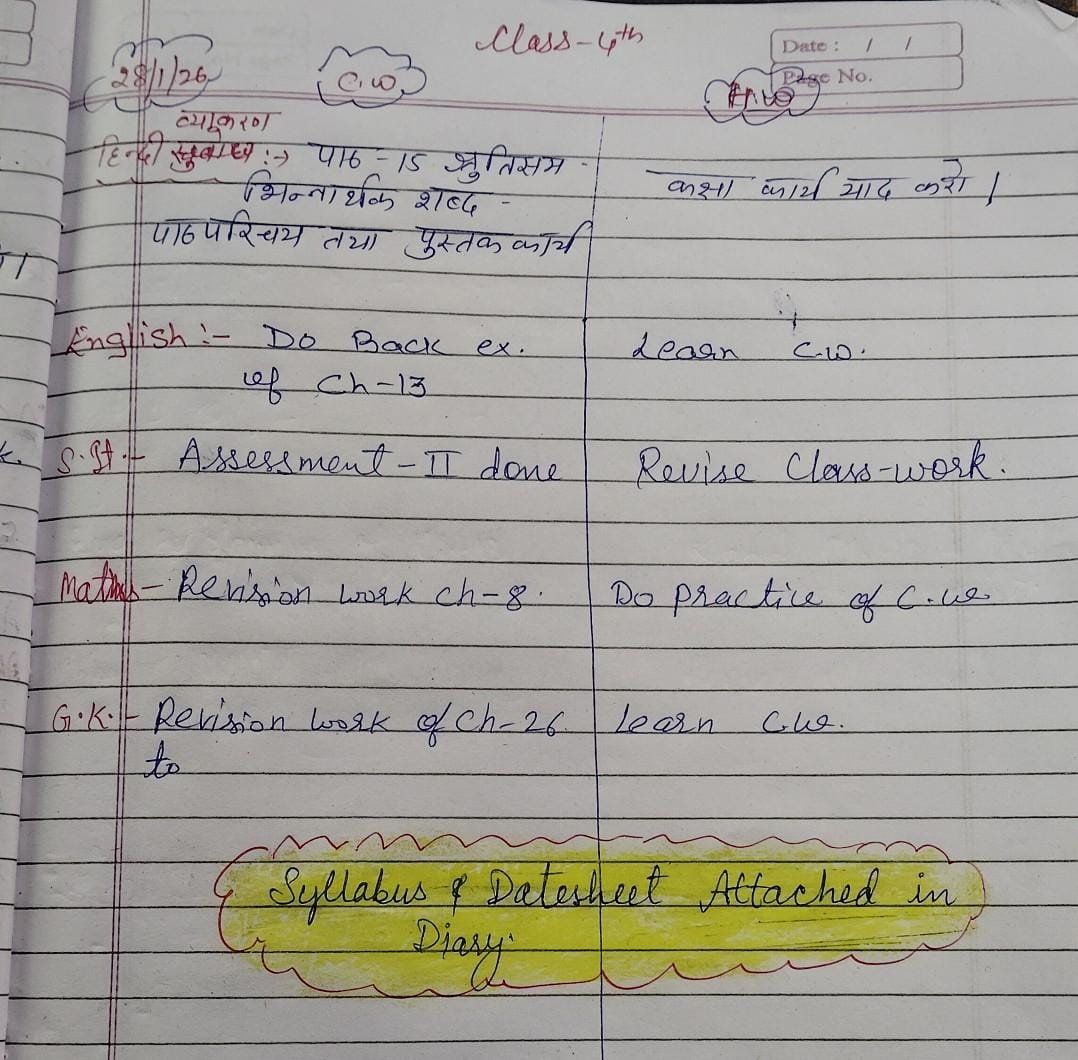 Class-4th
Date : / /
Page No.
28/1/26 C.W H.W
व्याकरण
हिन्दी :→ पाठ - 15 श्रुतिसम -
भिन्नार्थक शब्द - कक्षा कार्य याद करो।
पाठ परिचय तथा पुस्तक कार्य
English :- Do Back ex. Learn C.W.
of Ch-13
S.St.- Assessment-II done Revise Class-work.
Maths- Revision work ch-8. Do practice of C.W.
G.K.- Revision work of Ch-26 Learn C.W.
to
Syllabus & Datesheet Attached in
Diary.